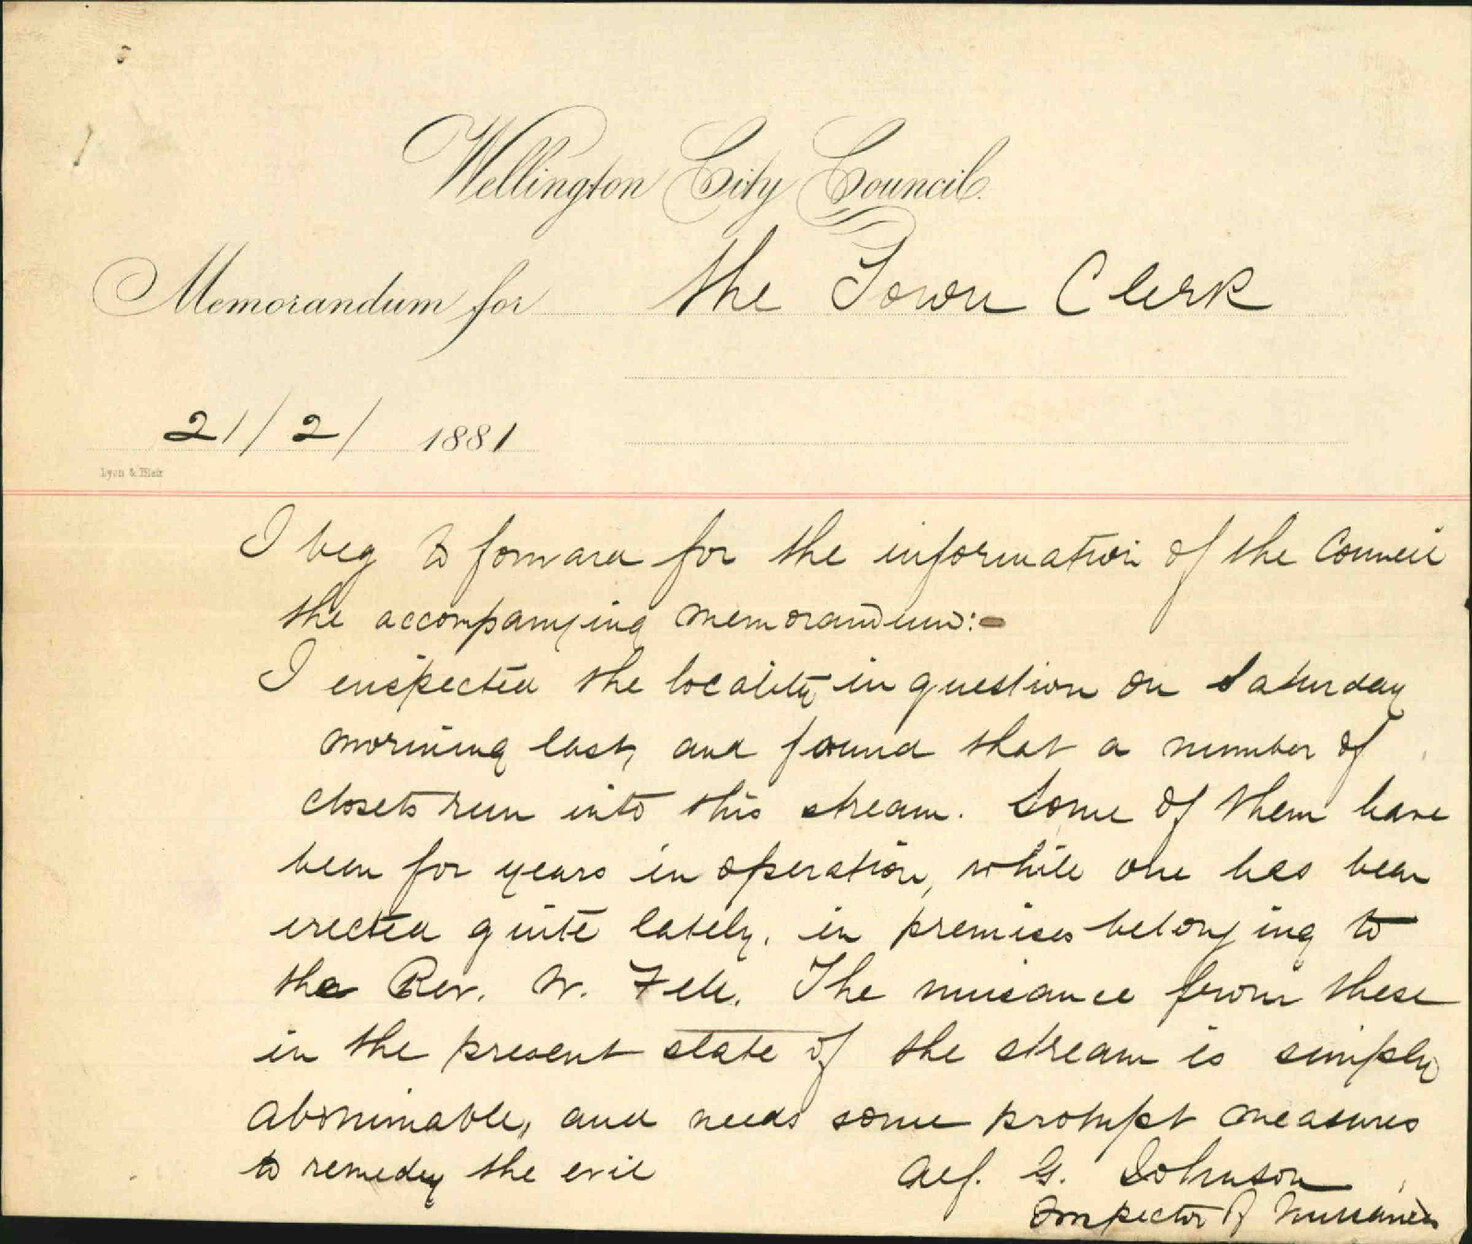 Wellington City Council.
Memorandum for the Town Clerk
21/2/1881
Lyon & Blair
I beg to forward for the information of the Council
the accompanying memorandum:-
I inspected the locality in question on Saturday
morning last, and found that a number of
closets run into this stream. Some of them have
been for years in operation, while one has been
erected quite lately, in premises belonging to
the Rev. W. Fell. The nuisance from these
in the present state of the stream is simply
abominable, and needs some prompt measures
to remedy the evil
Alf. G. Johnson
Inspector of Nuisances